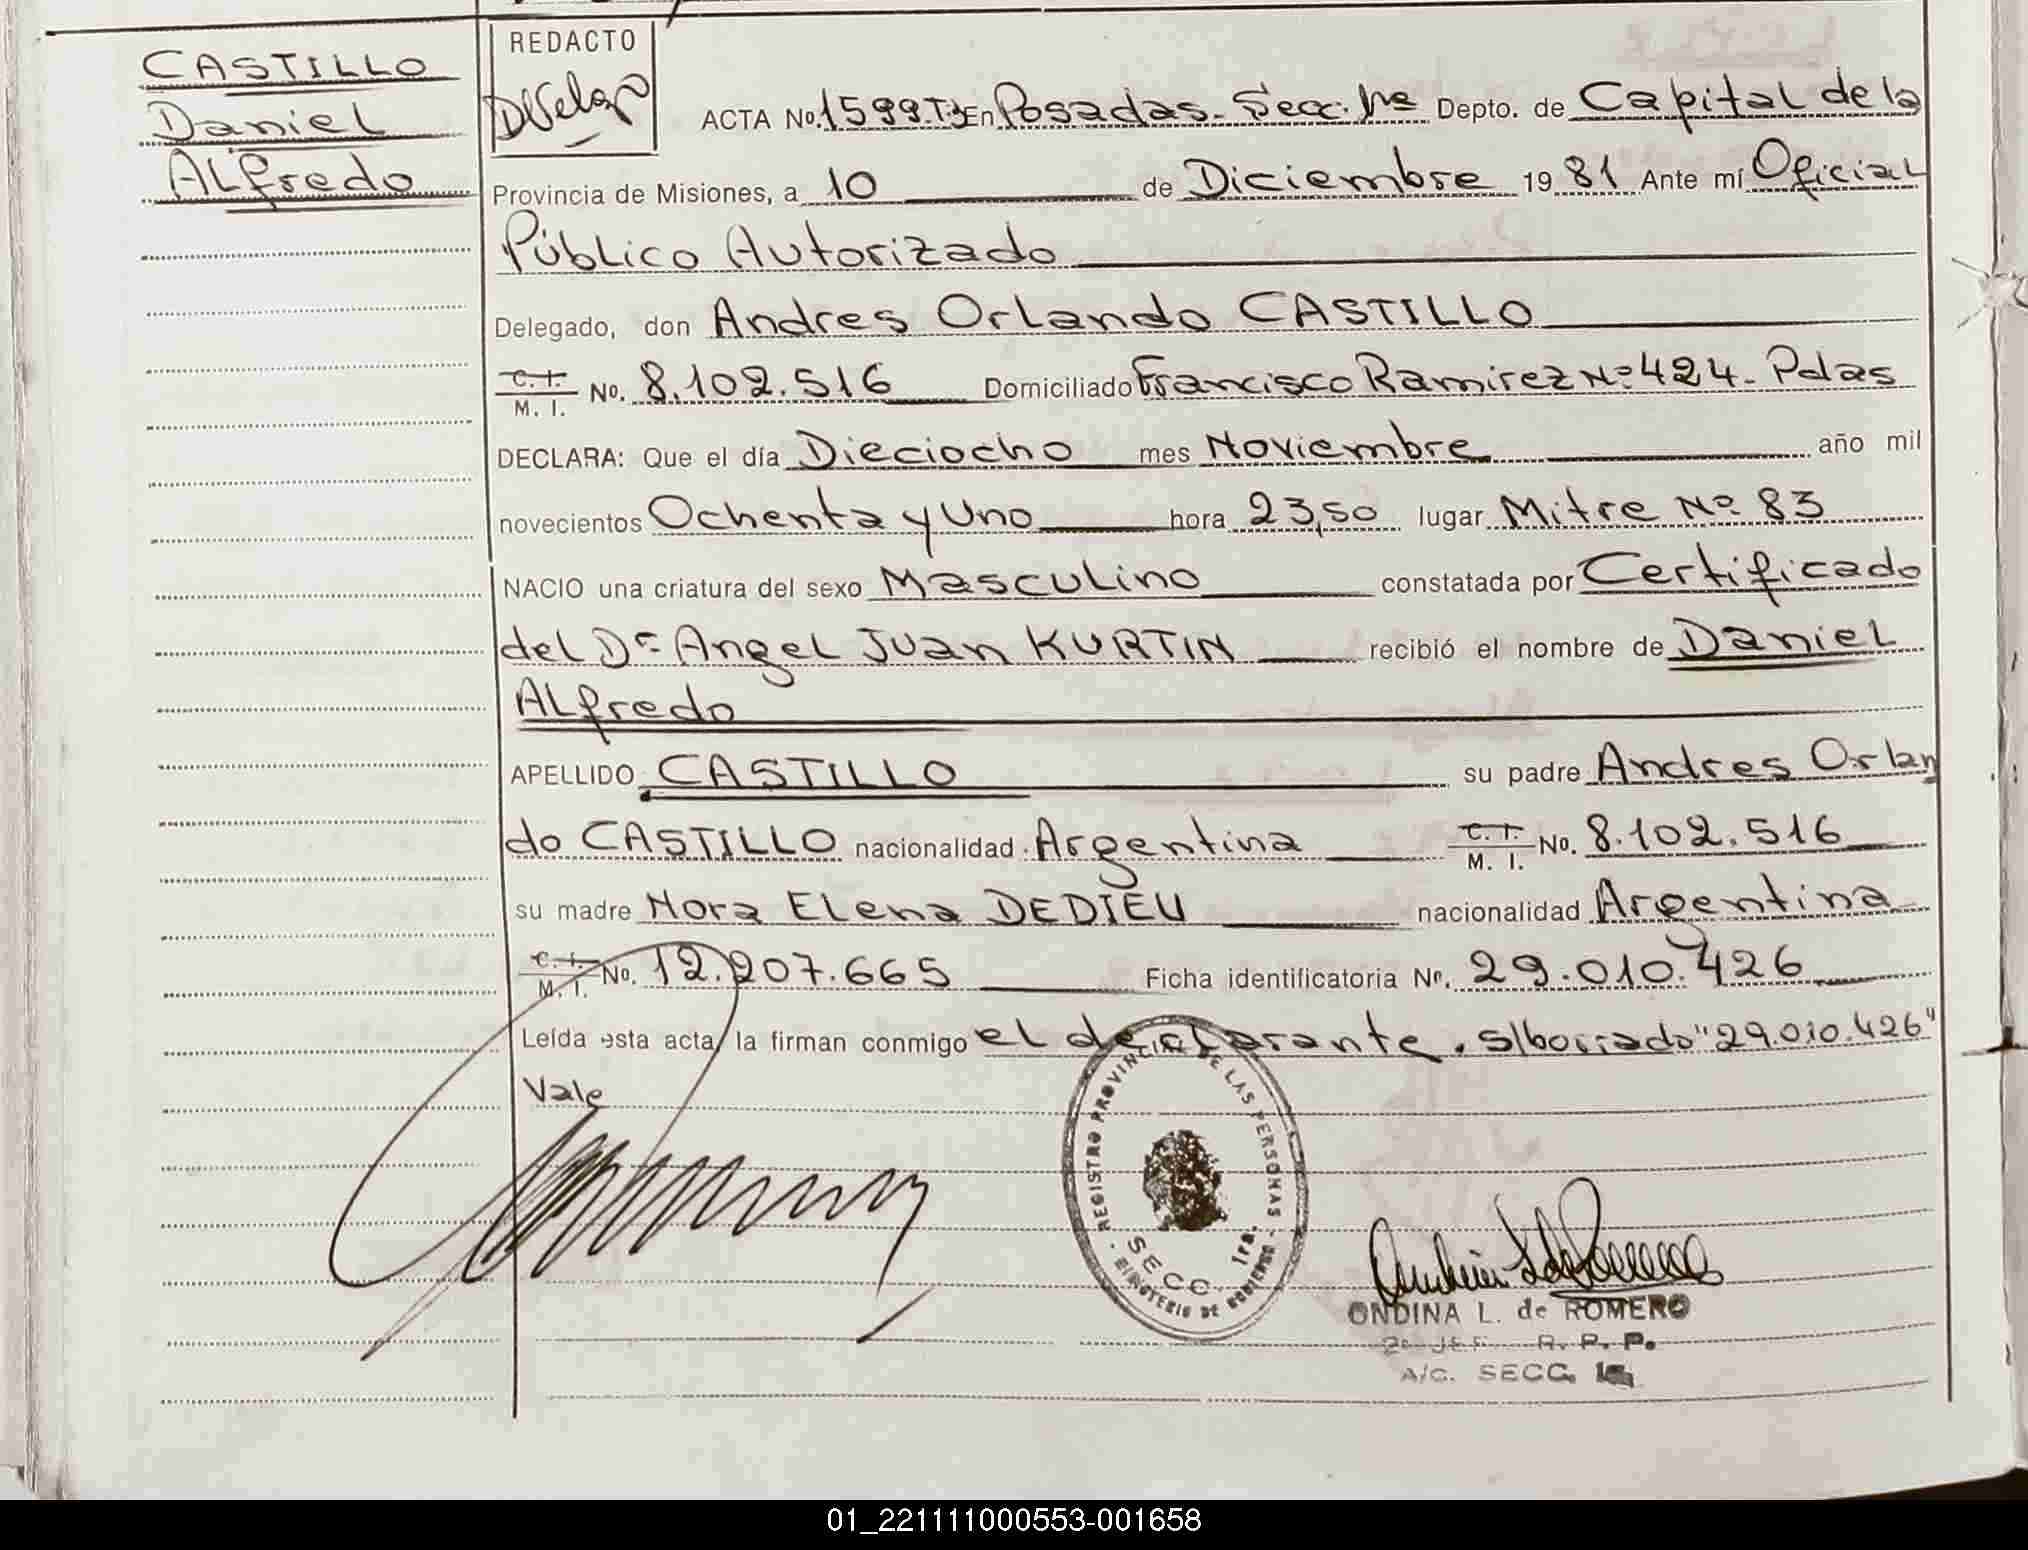 CASTILLO
Daniel
Alfredo
REDACTO
ACTA No. 1599 T.3 En Posadas - Secc. 1ra Depto. de Capital de la
Provincia de Misiones, a 10 de Diciembre 19 81 Ante mí Oficial
Público Autorizado
Delegado, don Andres Orlando CASTILLO
C. I. / M. I. No. 8.102.516 Domiciliado Francisco Ramirez Nº 424 - Pdas
DECLARA: Que el día Dieciocho mes Noviembre año mil
novecientos Ochenta y Uno hora 23,50 lugar Mitre Nº 83
NACIO una criatura del sexo Masculino constatada por Certificado
del Dr. Angel Juan KURTIN recibió el nombre de Daniel
Alfredo
APELLIDO CASTILLO su padre Andres Orlan
do CASTILLO nacionalidad Argentina C. I. / M. I. No. 8.102.516
su madre Nora Elena DEDIEU nacionalidad Argentina
C. I. / M. I. No. 12.207.665 Ficha identificatoria Nº. 29.010.426
Leída esta acta, la firman conmigo el declarante. s/borrado "29.010.426"
Vale
REGISTRO PROVINCIAL DE LAS PERSONAS
SECC. 1ra.
MINISTERIO DE GOBIERNO
ONDINA L. de ROMERO
2º JEF R. P. P.
A/C. SECC. 1a
01_221111000553-001658